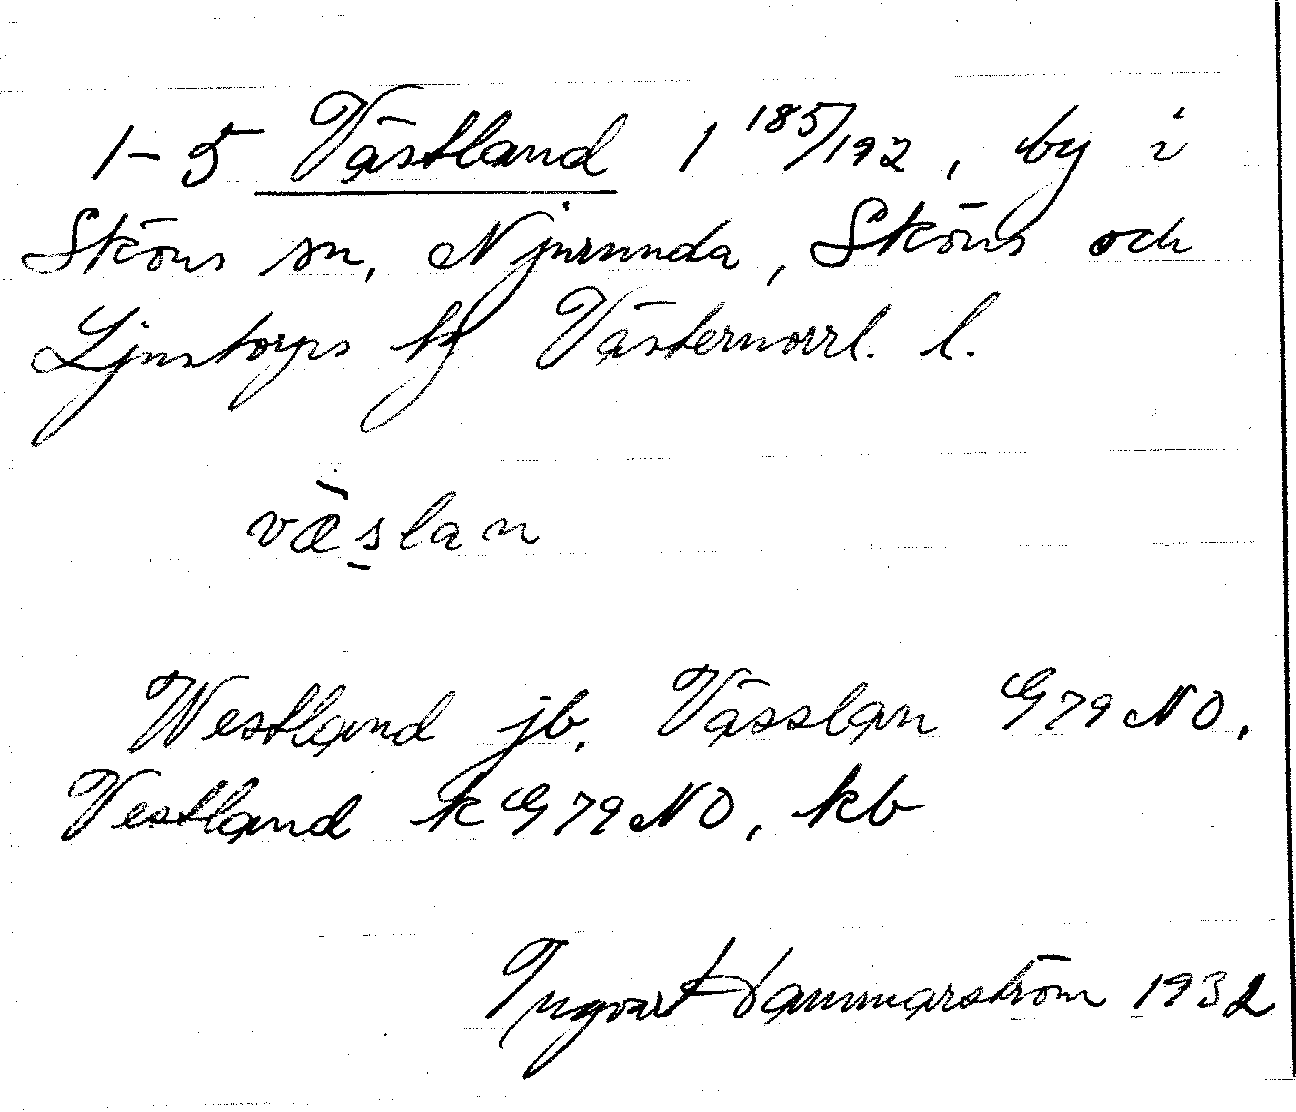 1-5 Västland 1 185/192, by i
Sköns sn, Njurunda, Sköns och
Ljustorps tg Västernorrl. l.
væ̀slan
Westland jb. Vässlan G79NO,
Vestland k G79NO, kb
Ingvar Hammarström 1932